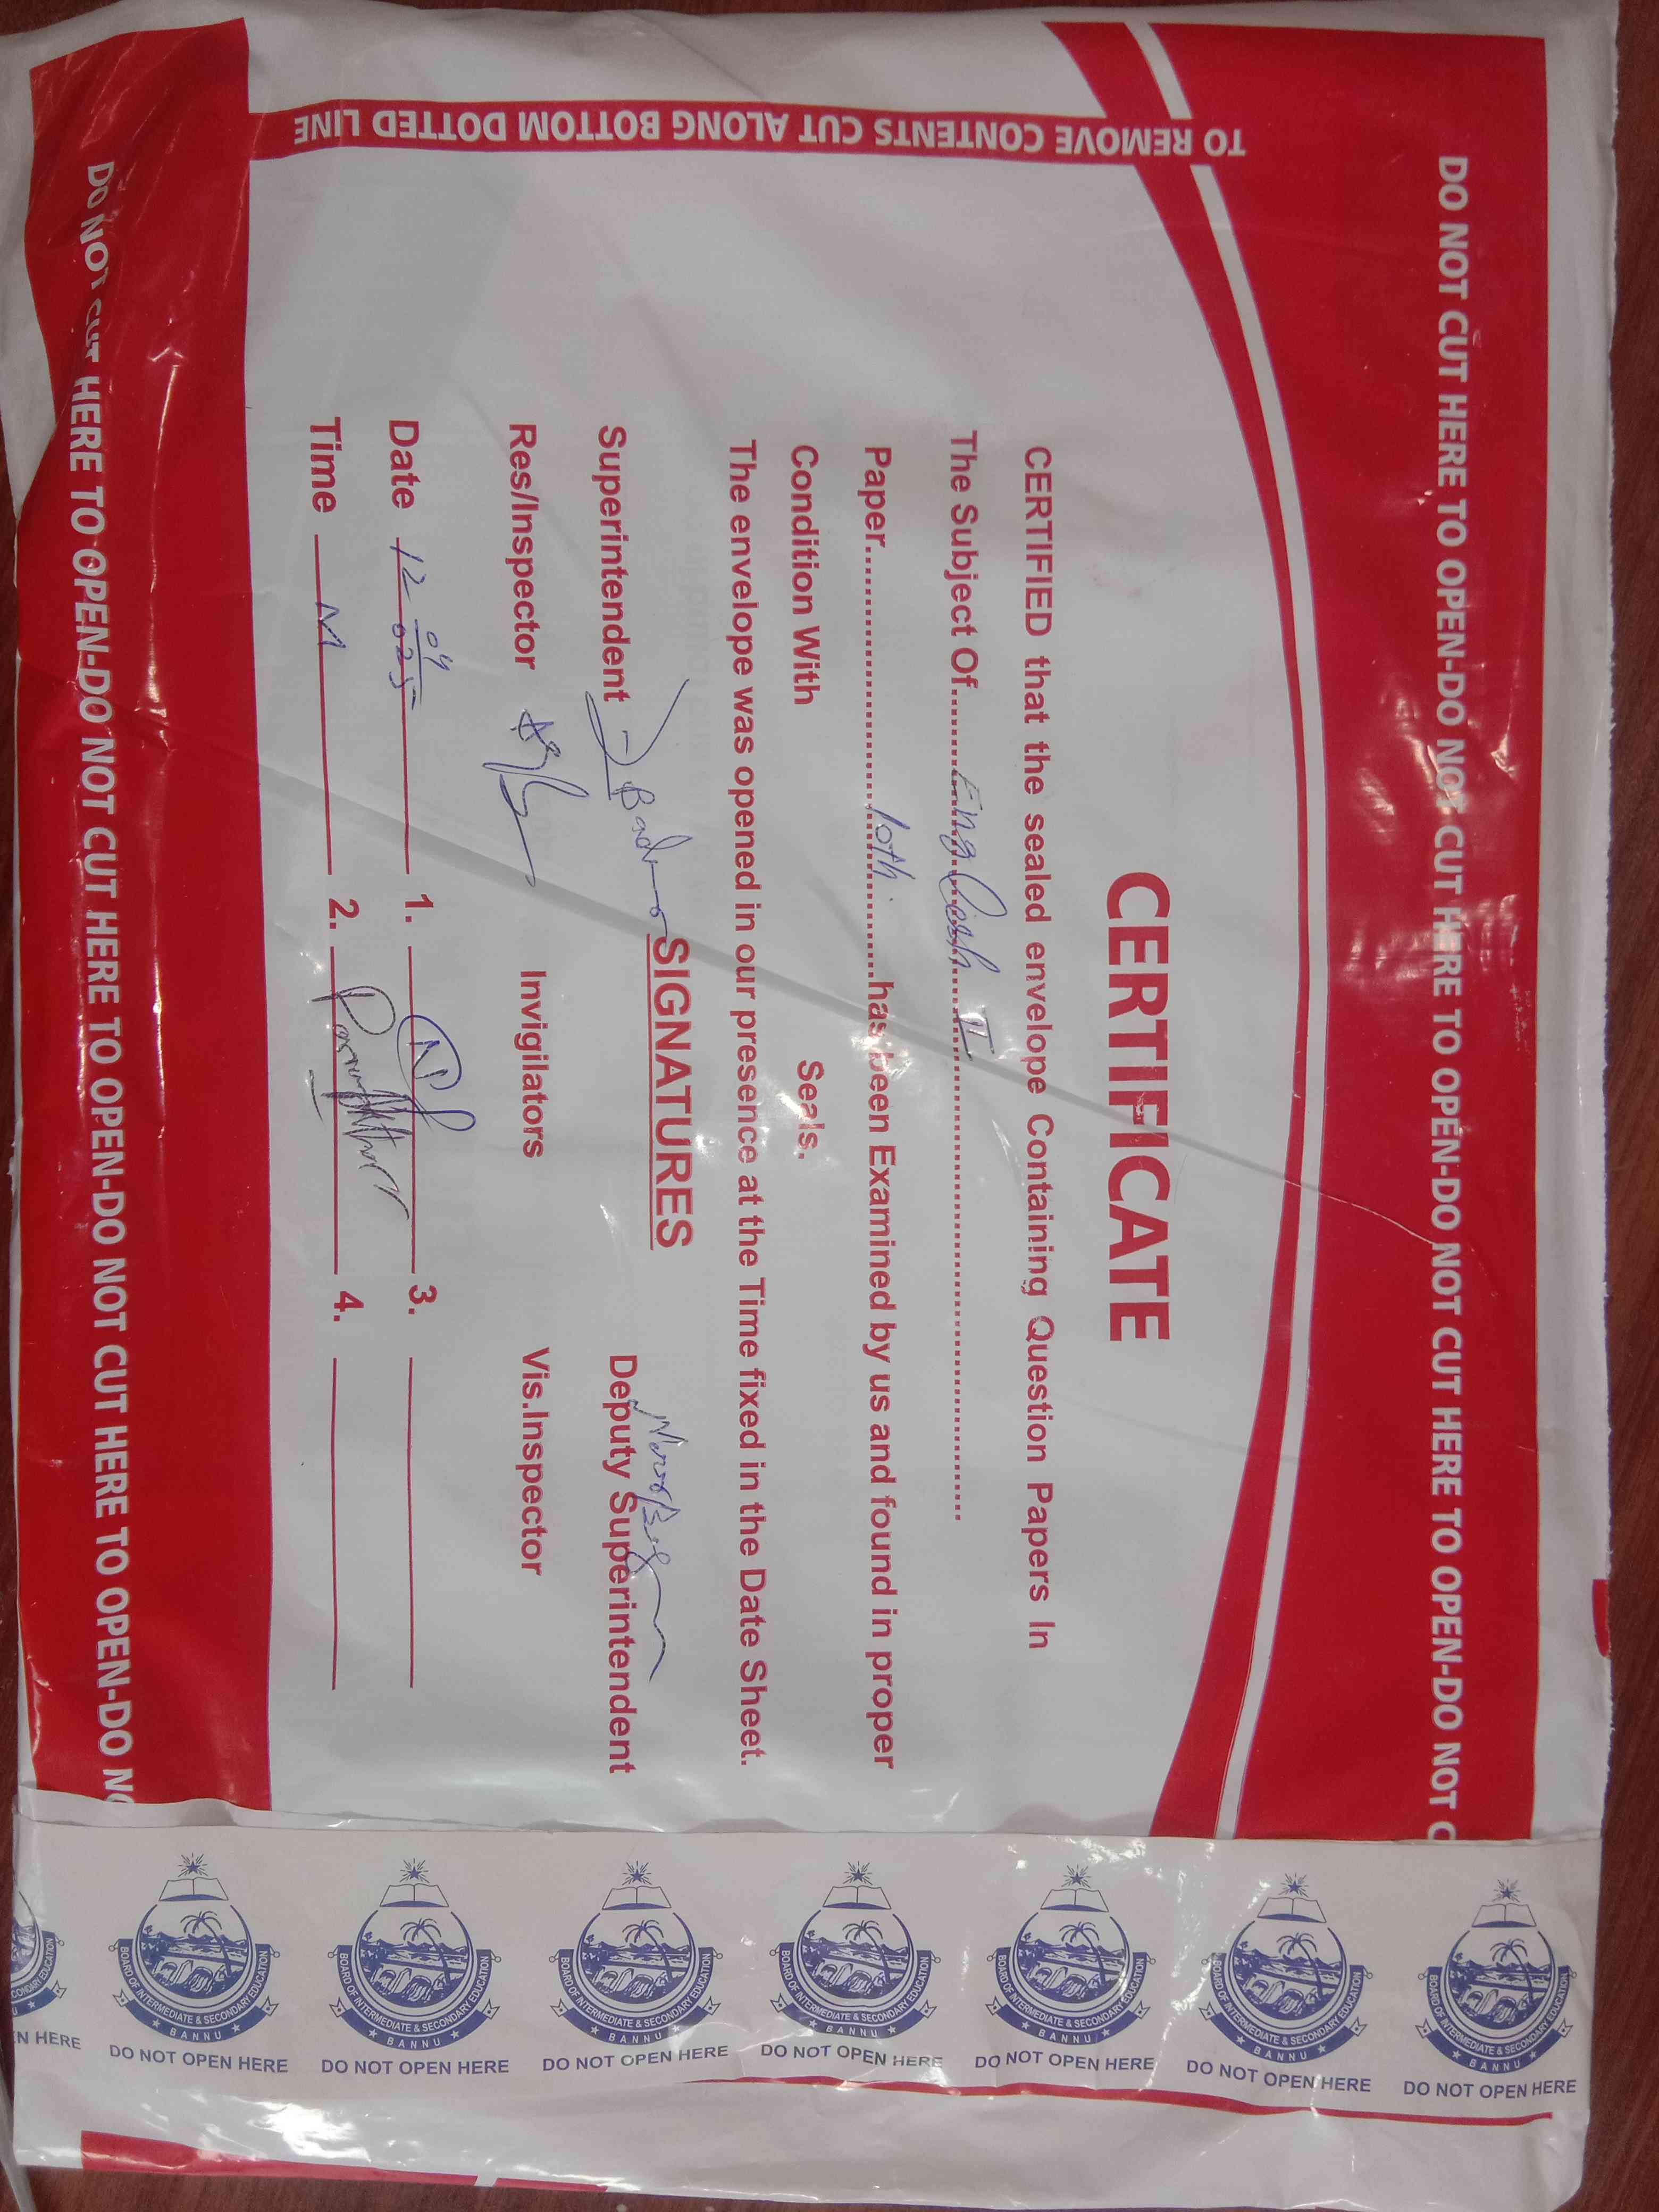 TO REMOVE CONTENTS CUT ALONG BOTTOM DOTTED LINE
DO NOT CUT HERE TO OPEN-DO NOT CUT HERE TO OPEN-DO NOT CUT HERE TO OPEN-DO NOT CUT HERE TO OPEN-DO NOT C
CERTIFICATE
CERTIFIED that the sealed envelope Containing Question Papers In
The Subject Of English II
Paper 10th has been Examined by us and found in proper
Condition With Seals.
The envelope was opened in our presence at the Time fixed in the Date Sheet.
SIGNATURES
Superintendent Deputy Superintendent
Res/Inspector Invigilators Vis.Inspector
Date 12 04 025 1. 3.
Time M 2. 4.
DO NOT CUT HERE TO OPEN-DO NOT CUT HERE TO OPEN-DO NOT CUT HERE TO OPEN-DO NOT CUT HERE TO OPEN-DO NO
BOARD OF INTERMEDIATE & SECONDARY EDUCATION
BANNU
DO NOT OPEN HERE
BOARD OF INTERMEDIATE & SECONDARY EDUCATION
BANNU
DO NOT OPEN HERE
BOARD OF INTERMEDIATE & SECONDARY EDUCATION
BANNU
DO NOT OPEN HERE
BOARD OF INTERMEDIATE & SECONDARY EDUCATION
BANNU
DO NOT OPEN HERE
BOARD OF INTERMEDIATE & SECONDARY EDUCATION
BANNU
DO NOT OPEN HERE
BOARD OF INTERMEDIATE & SECONDARY EDUCATION
BANNU
DO NOT OPEN HERE
BOARD OF INTERMEDIATE & SECONDARY EDUCATION
BANNU
DO NOT OPEN HERE
EDUCATION
U
EN HERE